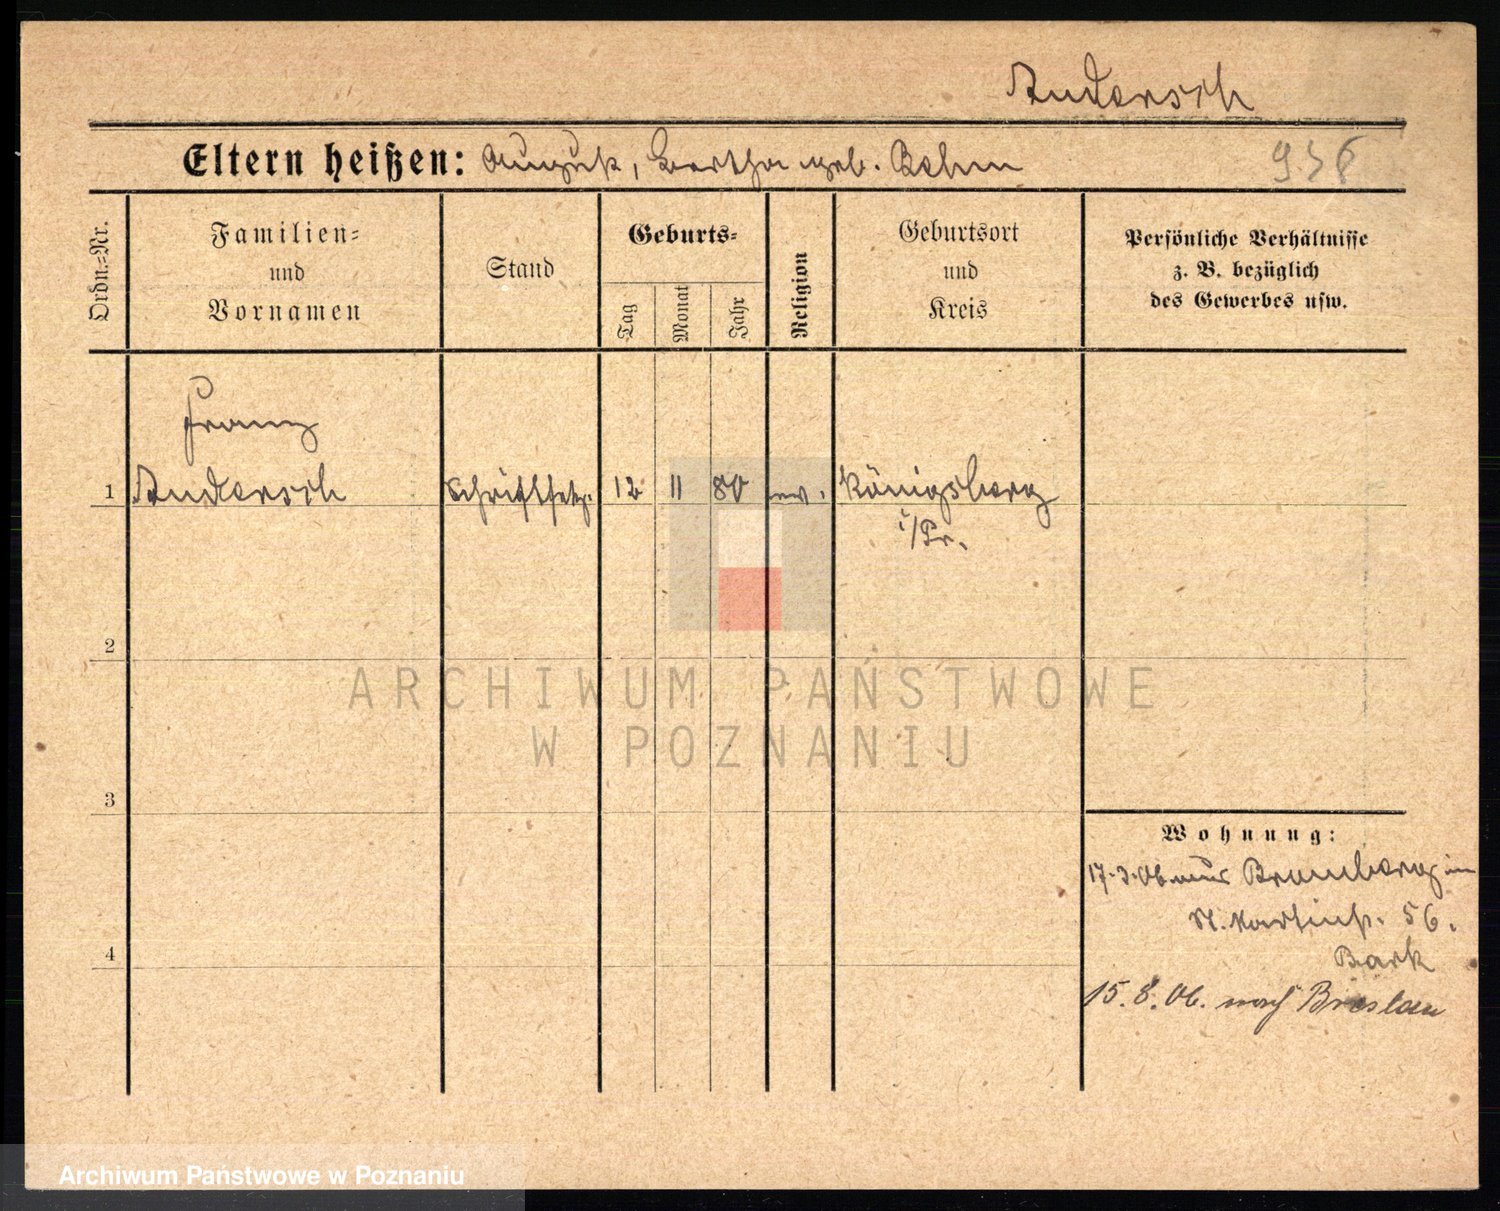 Andersch
Eltern heißen: August, Bertha geb. Behm
Ordn.=Nr.
Familien=
und
Vornamen
Stand
Geburts=
Tag
Monat
Jahr
Religion
Geburtsort
und
Kreis
Persönliche Verhältnisse
z. B. bezüglich
des Gewerbes usw.
Franz
1 Andersch Schriftsetz. 12 11 80 ev. Königsberg
i/Pr.
2
3
4
Wohnung:
17.3.06 aus Bromberg in
St. Martinst. 56.
Bark
15.8.06. nach Breslau
ARCHIWUM PAŃSTWOWE
W POZNANIU
Archiwum Państwowe w Poznaniu